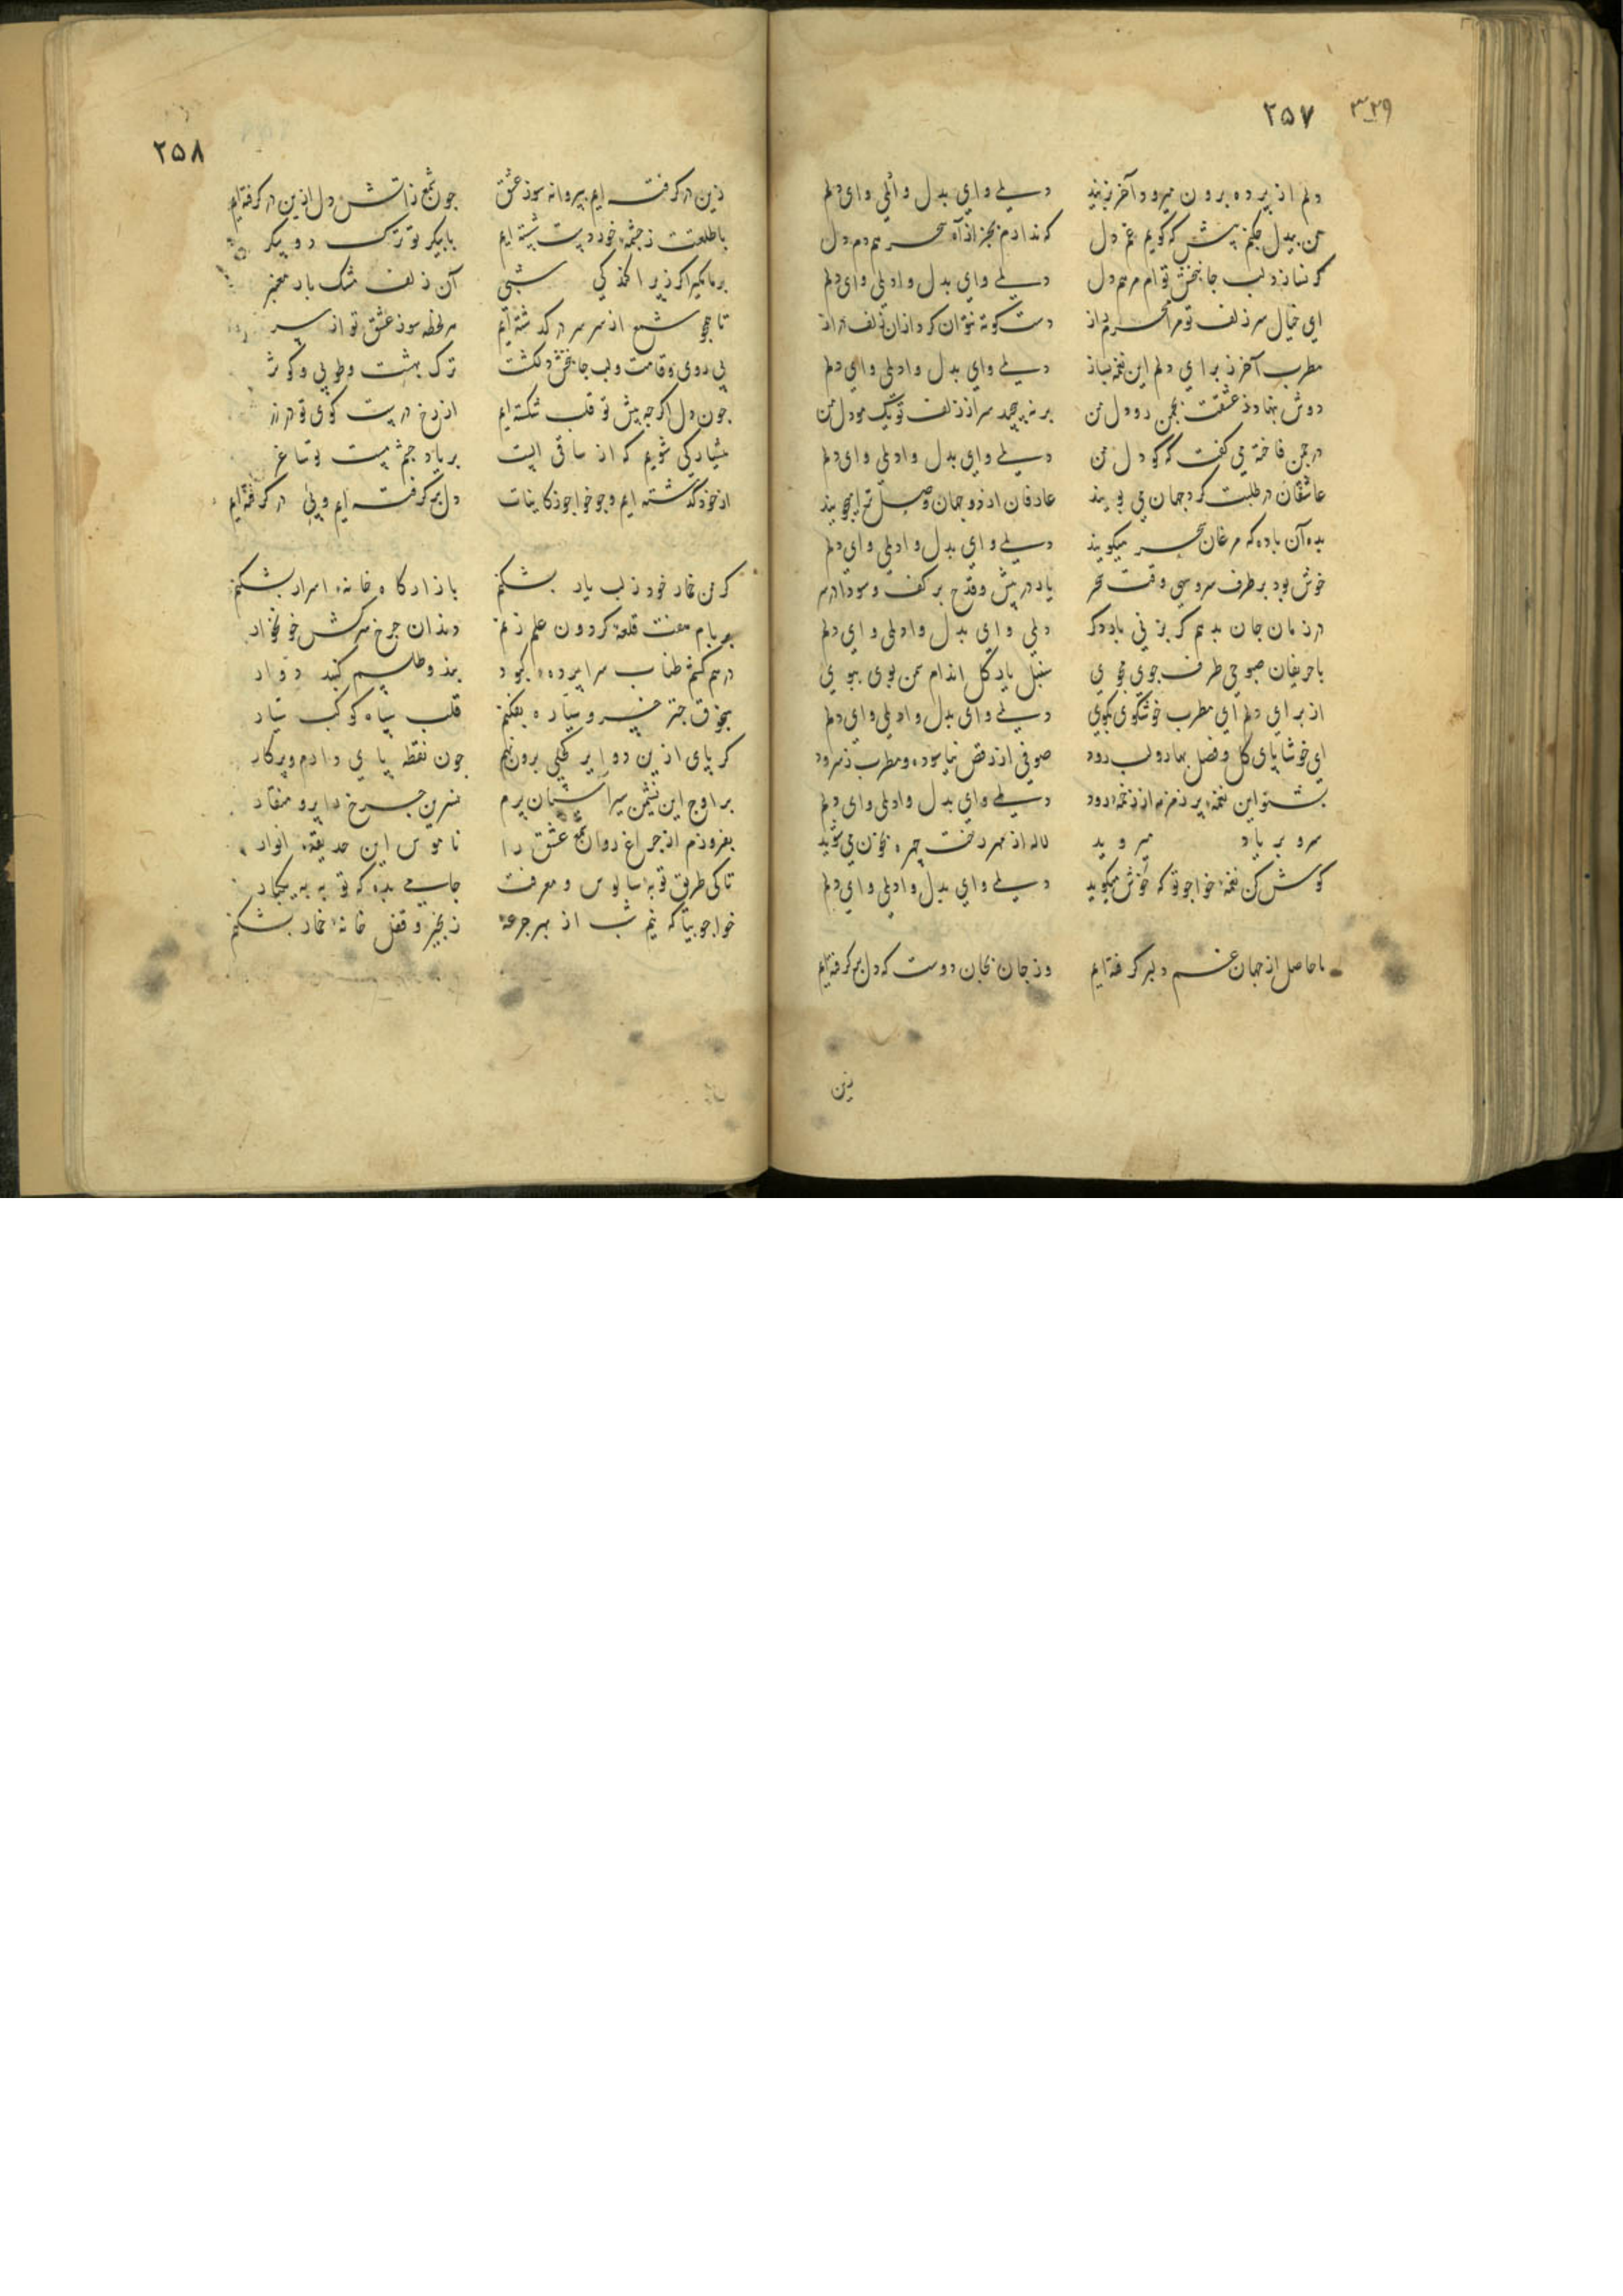 ۳۲۹
۲۵۷
دلم از پرده برون میرود آخر بزنید دیلے وای بدل وائلی وای دلم
من بیدل چکنم پیش که گویم غم دل که ندارم بجز از آه سحر همدم دل
گر نسازد لب جانبخش توام مرهم دل دیلے وای بدل وادیلی وای دلم
ای خیال سر زلف تو مرا محرم راز دست کوته نتوان کرد از ان زلف دراز
مطرب آخر ز برای دلم این نغمه بساز دیلے وای بدل وادیلی وای دلم
دوش بنهاد ز عشقت بچمن رو دل من بر نپیچد سر از زلف تو یک مو دل من
در چمن فاخته می گفت که کو دل من دیلے وای بدل وادیلی وای دلم
عاشقان در طلبت گرد جهان می پویند عارفان از دو جهان وصل ترا میجویند
بده آن باده که مرغان سحر میگویند دیلے وای بدل وادیلی وای دلم
خوش بود بر طرف سرو سهی وقت سحر یار در پیش و قدح بر کف و سودا در سر
در زمان جان بدهم گر بزنی بار دگر دیلی وای بدل وادیلی وای دلم
با حریفان صبوحی طرف جوی بجوی سنبل یار گل اندام سمن بوی ببوی
از برای دلم ای مطرب خوشگوی بگوی دیلے وای بدل وادیلی وای دلم
ای خوشا پای گل و فصل بهار و لب رود صوفی از رقص نیاسوده و مطرب ز سرود
بشنو این نغمهٔ پر زمزمه از زخمهٔ رود دیلے وای بدل وادیلی وای دلم
سرو بر یاد میروید لاله از مهر رخت چهره بخون می شوید
گوش کن نغمهٔ خواجو تو که خوش میگوید دیلے وای بدل وادیلی وای دلم
ما حاصل از جهان غم دلبر گرفته ایم وز جان بجان دوست که دل بر گرفته ایم
زین
۲۵۸
زین در گرفته ایم بپروانه سوز عشق چون شمع ز آتش دل ازین در گرفته ایم
با طلعت ز چشمهٔ خور دست شسته ایم با پیکر تو ترک دو پیکر
بر ما مگیر اگر ز پراگندگی شبی آن زلف مشک بار معنبر
تا همچو شمع از سر سر در گذشته ایم هر لحظه سوز عشق تو از سر
بی روی و قامت و لب جانبخش دلکشت ترک بهشت و طوبی و کوثر
چون دل اگر چه پیش تو قلب شکسته ایم از رخ درست کوی تو در زر
هشیار کی شویم که از ساقی الست بر یاد چشم مست تو ساغر
از خود گذشته ایم و چو خواجو ز کاینات دل بر گرفته ایم و پی در گرفته ایم
گر من خمار خود ز لب یار بشکنم بازار کارخانهٔ اسرار بشکنم
بر بام هفت قلعهٔ گردون علم زنم دندان چرخ سرکش خونخوار
درهم کشم طناب سراپردهٔ کبود بند و طلسم گنبد دوار
بیخرق چتر خسرو سیاره بفکنم قلب سپاه کوکب سیار
گر پای ازین دوایر کحلی برون نهم چون نقطه پای دارم و پرگار
بر اوج این نشیمن سیر آستان پرم نسرین چرخ دایر و منقار
بفروزم از چراغ روان شمع عشق را ناموس این حدیقهٔ انوار
تا کی طریق توبه و سالوس و معرفت جامی بده که توبه بیکبار
خواجو بیا که نیم شب از بهر جرعهٔ زنجیر و قفل خانهٔ خمار بشکنم